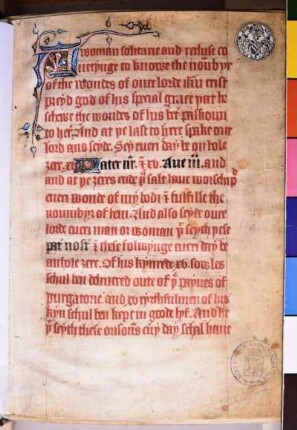 A woman solitarie and recluse co
ueitynge to knowe the noūbyr
of the woundes of oure lorde ihū crist
preyd god of his special grace þat he
schewe the woundes of his
to her. And at þe last to here spake oure
lord and seyde. Sey euery day be an hole
ȝere. xv Pater nr̄. ⁊ xv. Aue m̄. and
and at þe ȝeres ende þu schalt haue worschup
euery wonde of my bodi ⁊ fulfille the
noumbyr of hem. And also seyde oure
lorde euery man or woman þt seyth þese
pat' nost' ⁊ these folwynge euery day be
an hole ȝere. Of his kynrede xv. sowles
schul ben deliuered oute of þe peynes of
purgatorie. and xv ryȝthfulmen of his
kyn schul ben kept in goode lyf. And he
þt seyth these orisons euery day schal haue